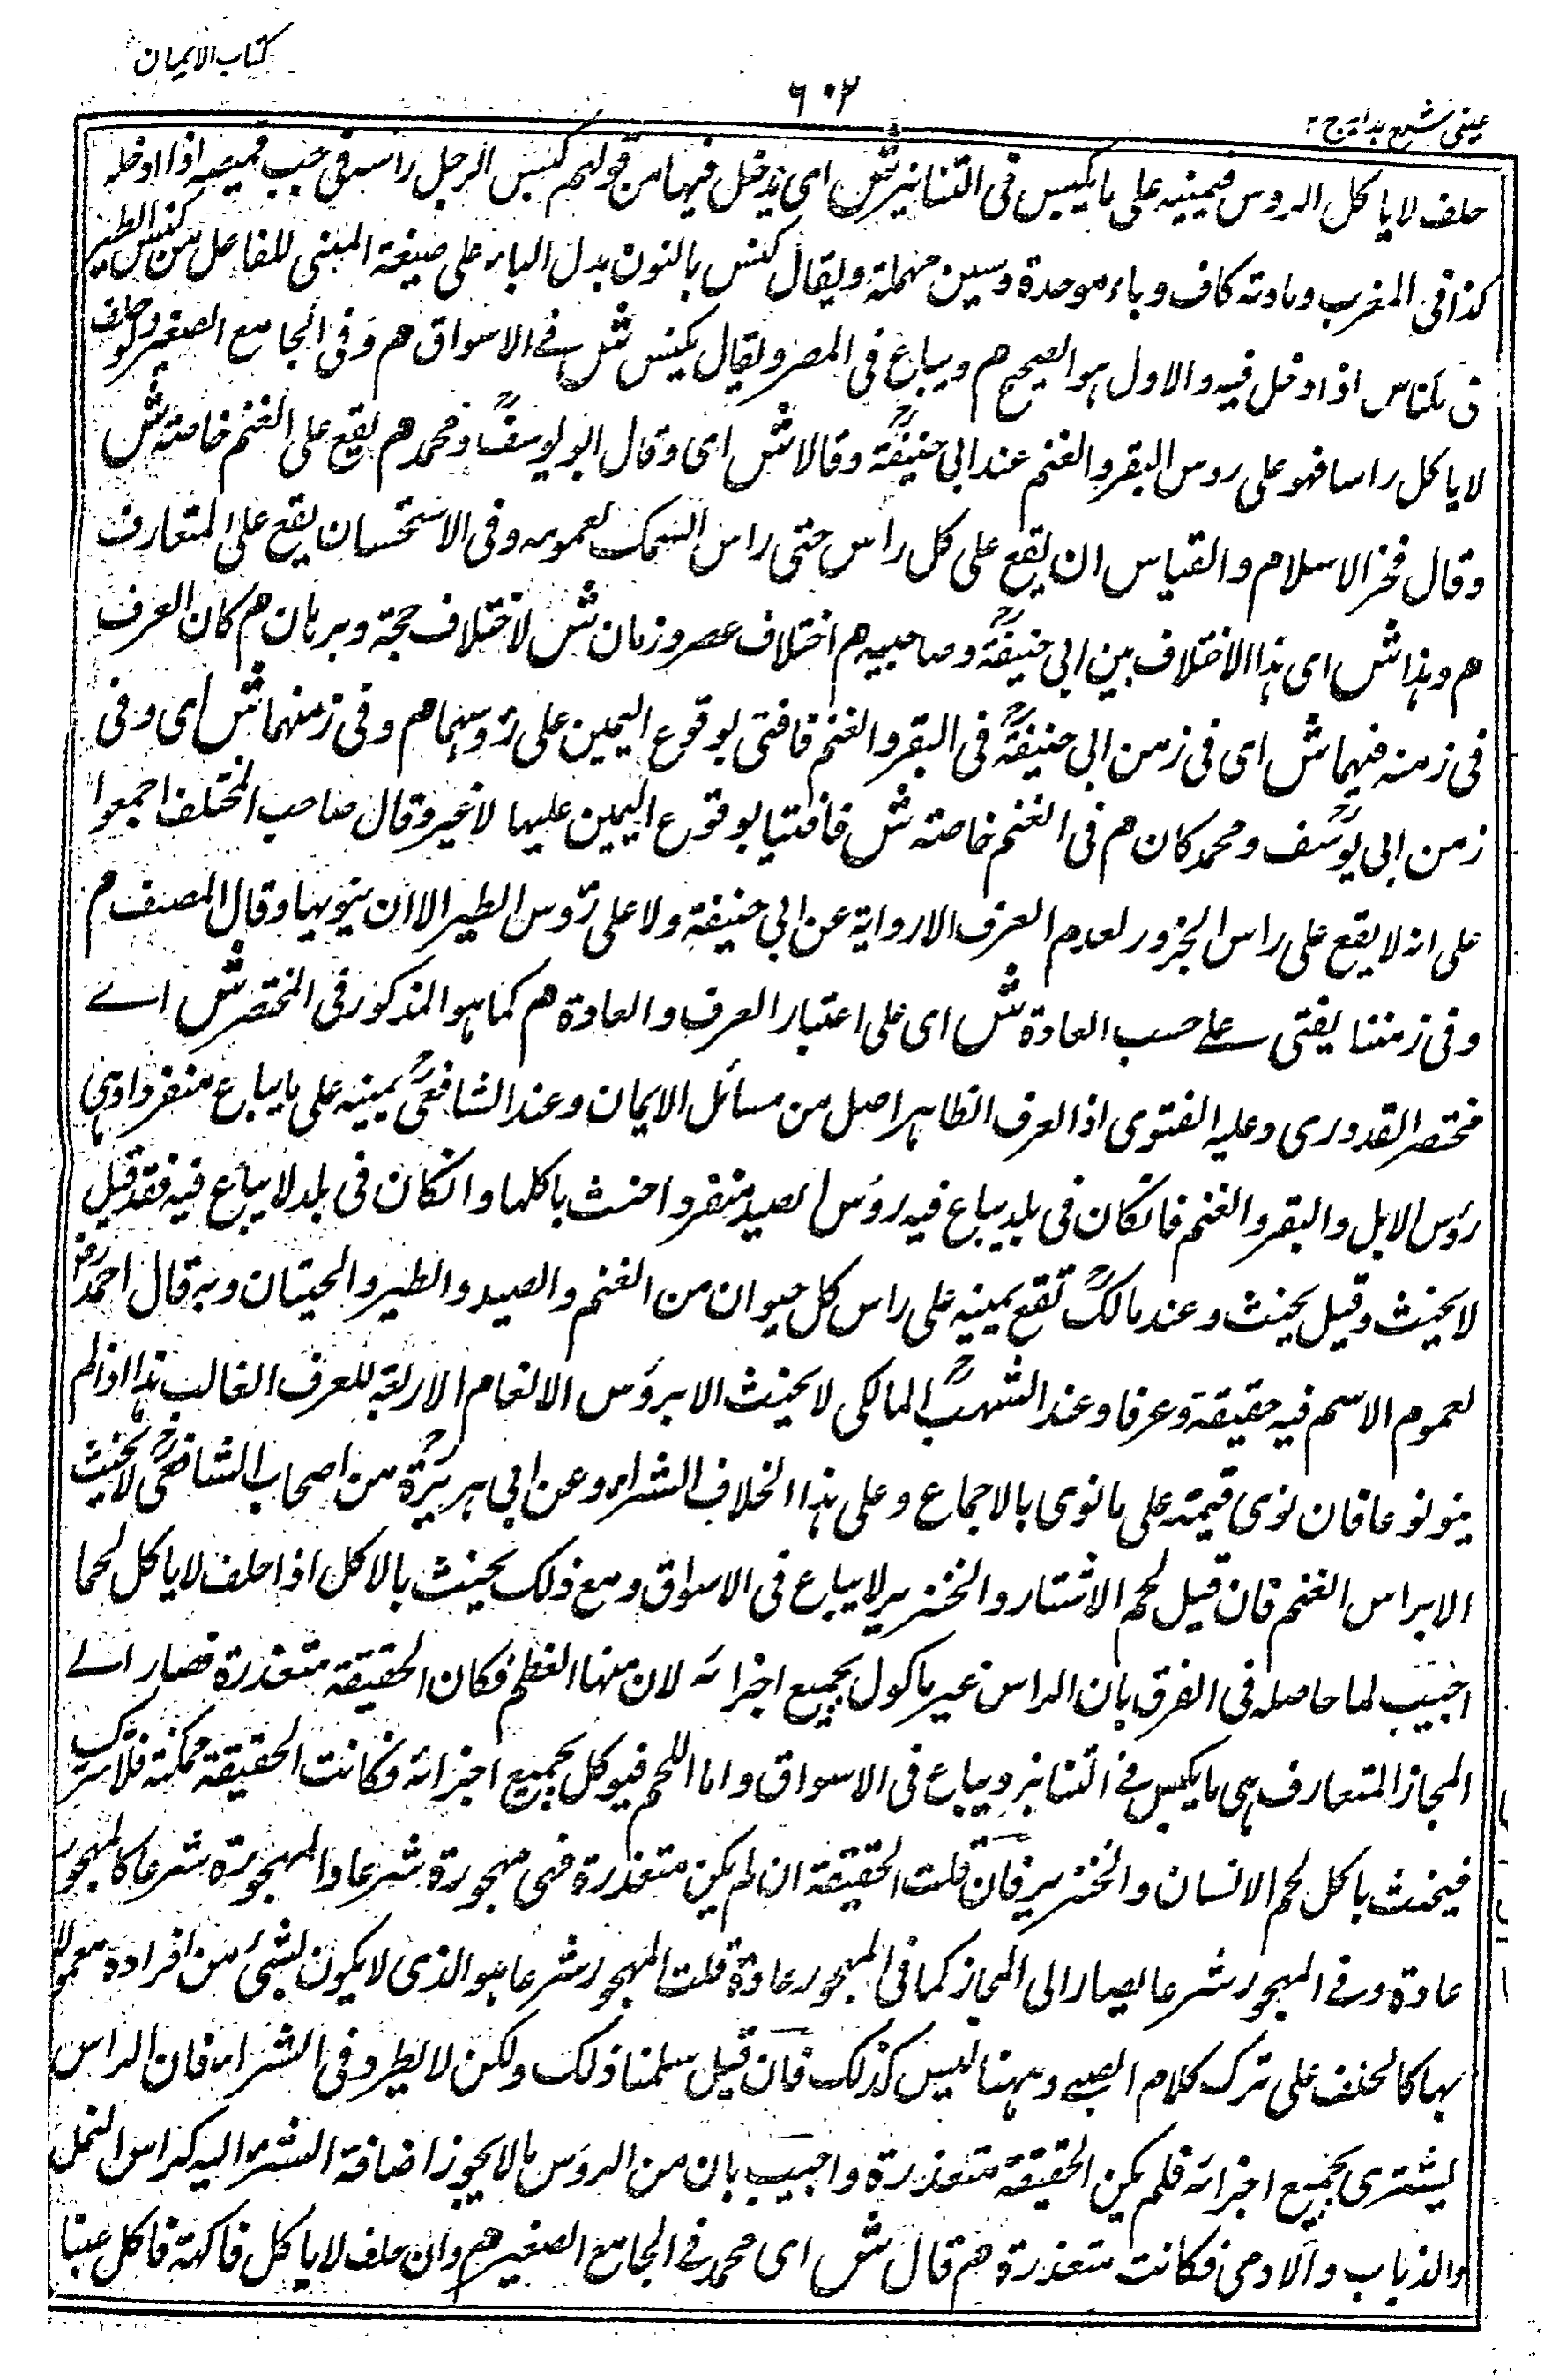 كتاب الايمان
٦٠٢
عينى شرح هدايه ج ٢
حلف لا ياكل الروس فيمينه على ما يكبس فى التنانير ش اى يدخل فيها من قولهم كبس الرجل راسه فى جيب قميصه اذا ادخله
كذا فى المغرب ومادته كاف وباء موحدة وسين مهملة ويقال كنس بالنون بدل الباء على صيغة المبنى للفاعل من كنس الطير
فى كناس اذا دخل فيه والاول هو الصحيح م ويباع فى المصر ويقال يكنس ش فے الاسواق م وفى الجامع الصغير ولو حلف
لا ياكل راسا فهو على روس البقر والغنم عند ابى حنيفةؒ وقالا ش اى وقال ابو يوسفؒ ومحمد م يقع على الغنم خاصة ش
وقال فخر الاسلام والقياس ان يقع على كل راس حتى راس السمك لعمومه وفى الاستحسان يقع على المتعارف
م وهذا ش اى هذا الاختلاف بين ابى حنيفةؒ وصاحبيه م اختلاف عصر وزمان ش لا ختلاف حجة وبرهان م كان العرف
فى زمنه فيهما ش اى فى زمن ابى حنيفةؒ فى البقر والغنم فافتى بوقوع اليمين على رؤسهما م وفى زمنهما ش اى وفى
زمن ابى يوسفؒ ومحمد كان م فى الغنم خاصة ش فافتيا بوقوع اليمين عليها لا غير وقال صاحب المختلف اجمعوا
على انه لا يقع على راس الجزور لعدم العرف الا رواية عن ابى حنيفة ولا على رؤس الطير الا ان ينويها وقال المصنف م
وفى زمننا يفتى على حسب العادة ش اى على اعتبار العرف والعادة م كما هو المذكور فى المختصر ش اے
مختصر القدورى وعليه الفتوى اذ العرف الظاهر اصل من مسائل الايمان وعند الشافعىؒ يمينه على ما يباع منفردا وهى
رؤس الابل والبقر والغنم فانكان فى بلد يباع فيه روس الصيد منفردا حنث باكلها وانكان فى بلد لا يباع فيه فقد قيل
لا يحنث وقيل يحنث وعند مالكؒ تقع يمينه على راس كل حيوان من الغنم والصيد والطير والحيتان وبه قال احمدؒ
لعموم الاسم فيه حقيقة وعرفا وعند اشهبؒ المالكى لا يحنث الا بروس الانعام الاربعة للعرف الغالب هذا اذا لم
ينو نوعا فان نوى قيمته على ما نوى بالاجماع وعلى هذا الخلاف الشراء وعن ابى هريرةؒ من اصحاب الشافعىؒ لا يحنث
الا براس الغنم فان قيل لحم والخنزير لا يباع فى الاسواق ومع ذلك يحنث بالاكل اذا حلف لا ياكل لحما
اجيب لما حاصله فى الفرق بان الراس غير ماكول بجميع اجزائه لان منها العظم فكان الحقيقة متعذرة فصار الے
المجاز المتعارف هى ما يكبس فے التنانير ويباع فى الاسواق واما اللحم فيوكل بجميع اجزائه فكانت الحقيقة ممكنة فلا تترك
فيحنث باكل لحم الانسان والخنزير فان قلت الحقيقة ان لم يكن متعذرة فهى مهجورة شرعا والمهجورة شرعا كالمهجور
عادة وفے المهجور شرعا يصار الى المجاز كما فى المهجور عادة قلت المهجور شرعا هو الذى لا يكون لشئ من افراده معمولا
بها كالحلف على ترك كلام الصبے وههنا ليس كذلك فان قيل سلمنا ذلك ولكن لا يطرد فى الشراء فان الراس
يشترى بجميع اجزائه فلم يكن الحقيقة متعذرة واجيب بان من الروس ما لا يجوز اضافة الشراء اليه كراس النمل
والذباب والادمى فكانت متعذرة م قال ش اى محمد فے الجامع الصغير م وان حلف لا ياكل فاكهة فاكل عنبا